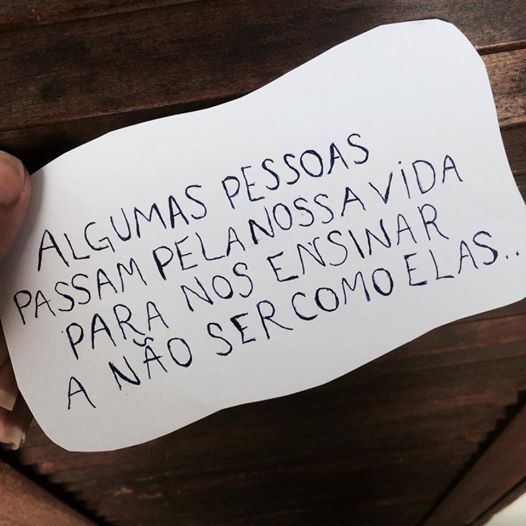 ALGUMAS PESSOAS
PASSAM PELA NOSSA VIDA
PARA NOS ENSINAR
A NÃO SER COMO ELAS..